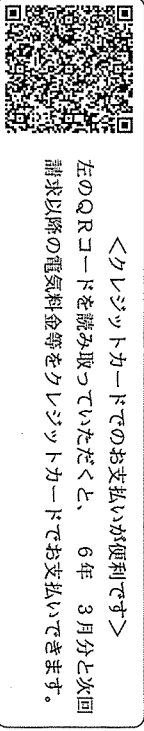 ＜クレジットカードでのお支払いが便利です＞
左のＱＲコードを読み取っていただくと、　６年　３月分と次回
請求以降の電気料金等をクレジットカードでお支払いできます。